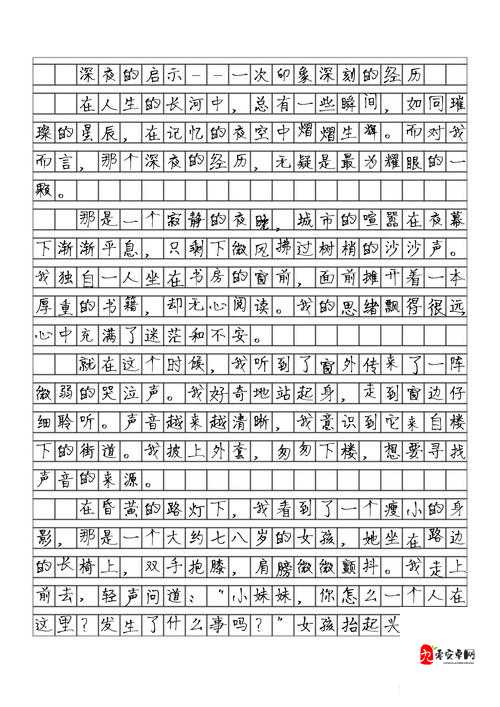 深夜的启示--一次印象深刻的经历
在人生的长河中，总有一些瞬间，如同璀
璨的星辰，在记忆的夜空中熠熠生辉。而对我
而言，那个深夜的经历，无疑是最为耀眼的一
颗。
那是一个寂静的夜晚，城市的喧嚣在夜幕
下渐渐平息，只剩下微风拂过树梢的沙沙声。
我独自一人坐在书房的窗前，面前摊开着一本
厚重的书籍，却无心阅读。我的思绪飘得很远
心中充满了迷茫和不安。
就在这个时候，我听到了窗外传来了一阵
微弱的哭泣声。我好奇地站起身，走到窗边仔
细聆听。声音越来越清晰，我意识到它来自楼
下的街道。我披上外套，匆匆下楼，想要寻找
声音的来源。
在昏黄的路灯下，我看到了一个瘦小的身
影，那是一个大约七八岁的女孩，她坐在路边
的长椅上，双手抱膝，肩膀微微颤抖。我走上
前去，轻声问道："小妹妹，你怎么一个人在
这里？发生了什么事吗？"女孩抬起兴